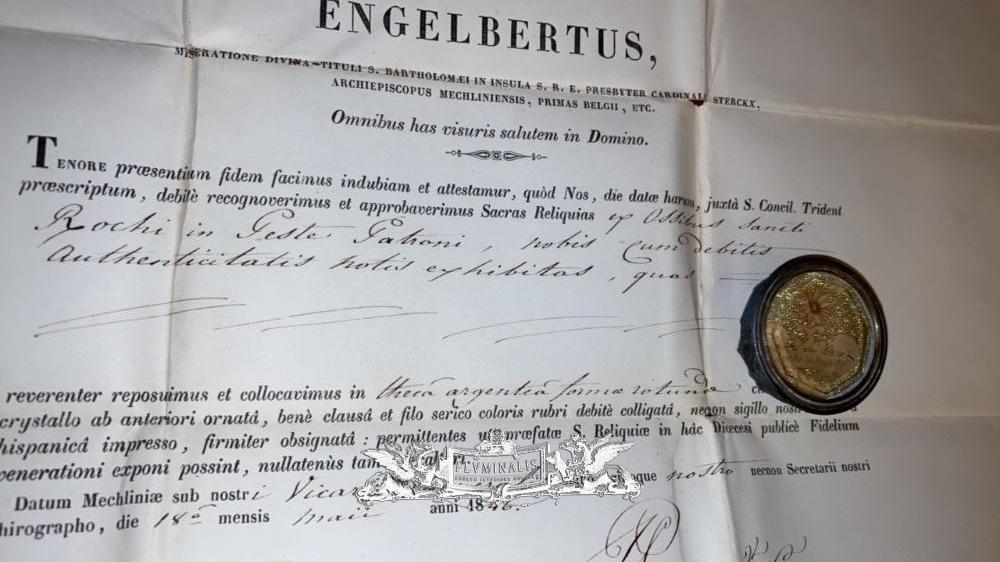 ENGELBERTUS,
MISERATIONE DIVINA TITULI S. BARTHOLOMÆI IN INSULA S. R. E. PRESBYTER CARDINALIS STERCKX,
ARCHIEPISCOPUS MECHLINIENSIS, PRIMAS BELGII, ETC.
Omnibus has visuris salutem in Domino.
TENORE præsentium fidem facimus indubiam et attestamur, quòd Nos, die datæ harum, juxtà S. Concil. Trident
præscriptum, debitè recognoverimus et approbaverimus Sacras Reliquias ex Ossibus Sancti
Rochi in Peste Patroni, nobis cum debitis
Authenticitatis notis exhibitas, quas
reverenter reposuimus et collocavimus in thecâ argenteâ formæ rotundæ
crystallo ab anteriori ornatâ, benè clausâ et filo serico coloris rubri debitè colligatâ, necnon sigillo
hispanicâ impresso, firmiter obsignatâ: permittentes præfatæ S. Reliquiæ in hâc Diœcesi publicè Fidelium
venerationi exponi possint, nullatenùs
FLVMINALIS
nostro necnon Secretarii nostri
Datum Mechliniæ sub nostri
chirographo, die 18â mensis maii anni 1846.